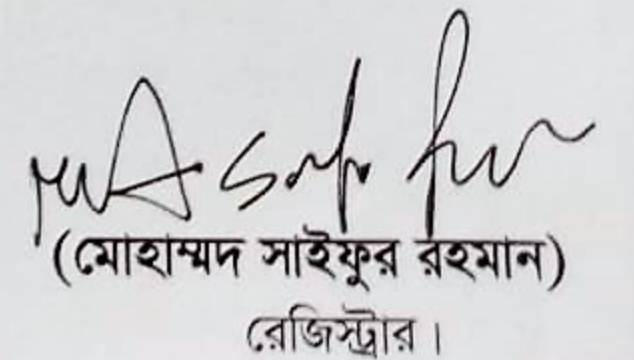 (মোহাম্মদ সাইফুর রহমান)
রেজিস্ট্রার।